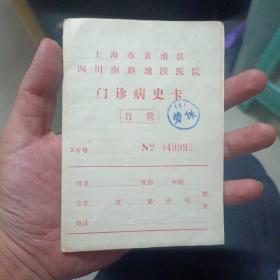 上海市黄浦区
四川南路地段医院
门诊病史卡
自管
(1)
劳保
X片号 No 049992
姓名 性别 年龄
住址 区 路弄号
电话